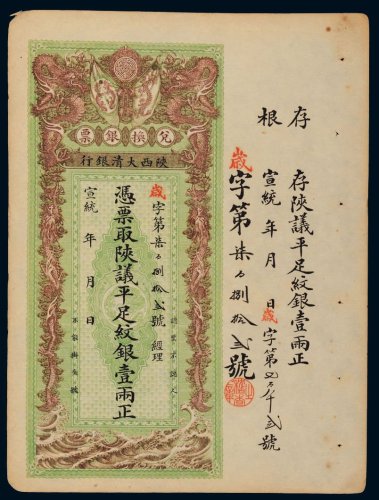 存根
存陝議平足紋銀壹兩正
宣統 年 月 日歲字第
歲字第柒 捌拾貳號
票銀換兌
行銀清大西陝
歲字第柒 捌拾貳號 經理
憑票取陝議平足紋銀壹兩正
宣統 年 月 日